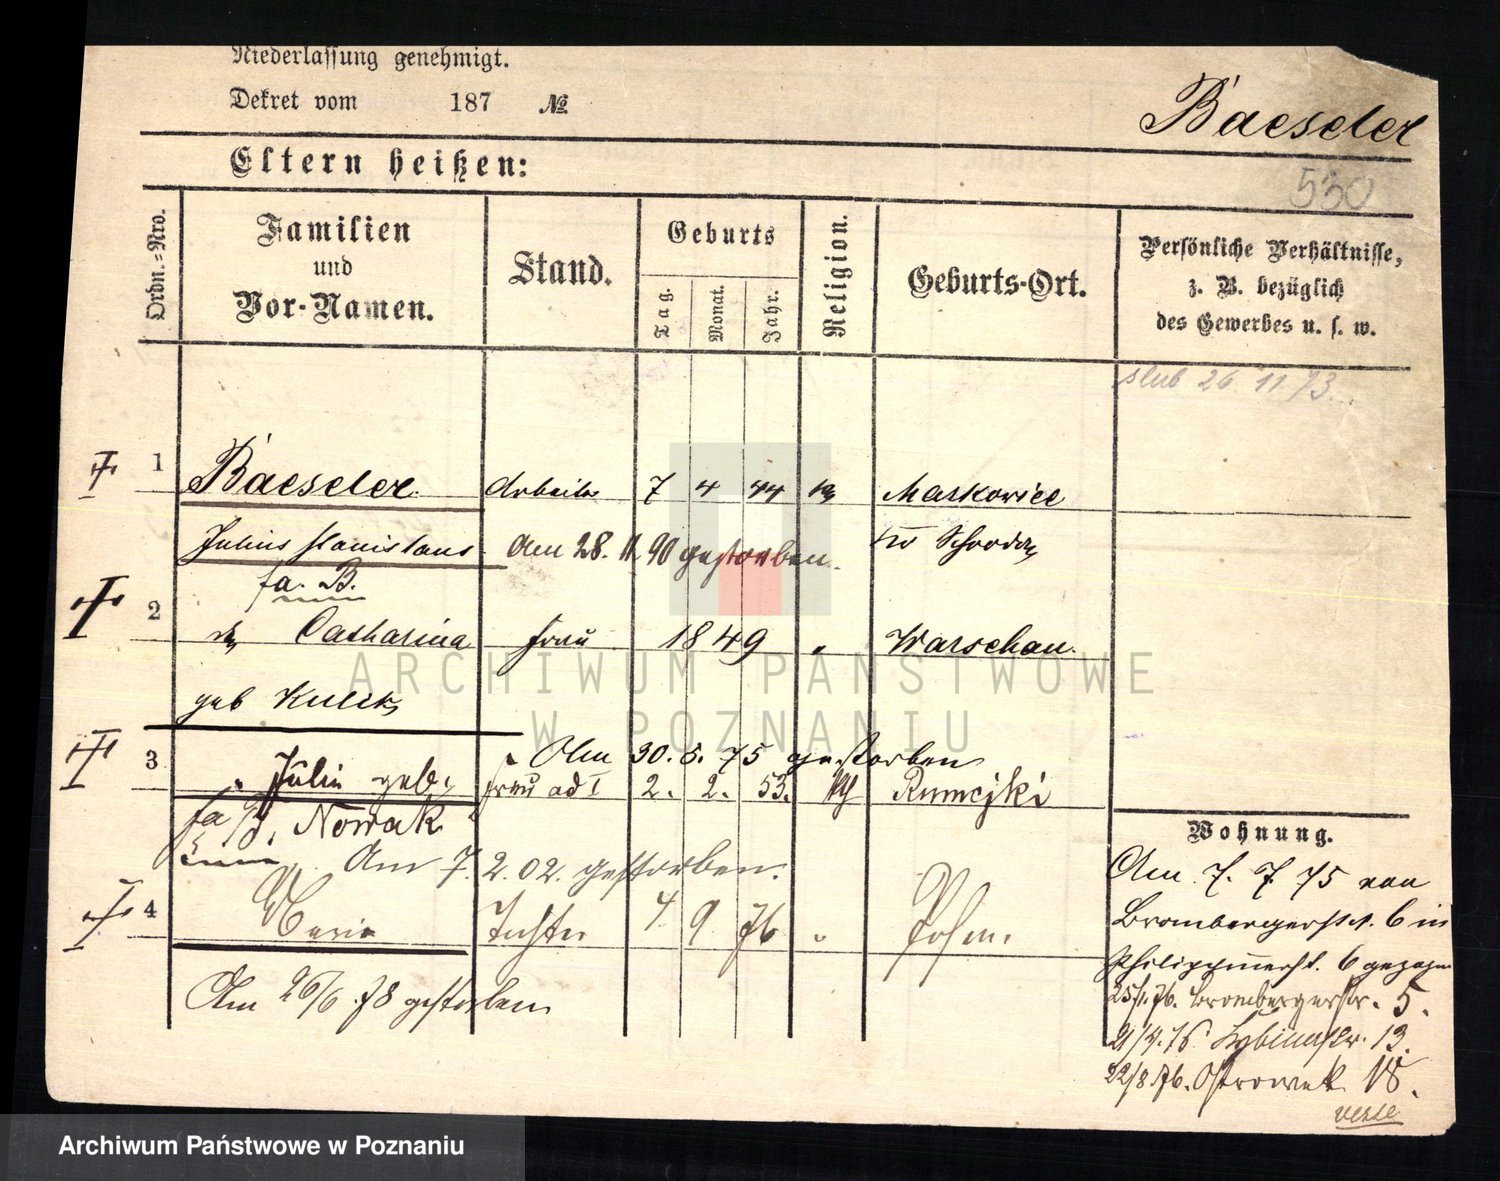 Niederlassung genehmigt.
Dekret vom 187 №
Baeseler
Eltern heißen:
530
Ordn.=Nro.
Familien
und
Vor-Namen.
Stand.
Geburts
Tag.
Monat.
Jahr.
Religion.
Geburts-Ort.
Persönliche Verhältnisse,
z. B. bezüglich
des Gewerbes u. s. w.
slub 26 11 73
1 Baeseler Arbeiter 7 4 44 Maskowice
Julius Stanislaus Am 28. 11. 90 gestorben.
fa. B.
2 Catharina Frau 1849 " Warschau.
geb
Am 30. 5. 75 gestorben
3 " Julie geb. Frau ad I 2. 2. 53.
fa B. Nowak
Am 7. 2. 02. gestorben.
4 Maria Tochter 9 76 " Posen.
Am 26/6. 78 gestorben
Wohnung.
Am 7. 7. 75 von
Brombergerstr. 6 in
6 gezogen
Brombergerstr. 5.
Sybinastr. 13.
22/8 76. Ostrowek 18.
ARCHIWUM PAŃSTWOWE
W POZNANIU
Archiwum Państwowe w Poznaniu